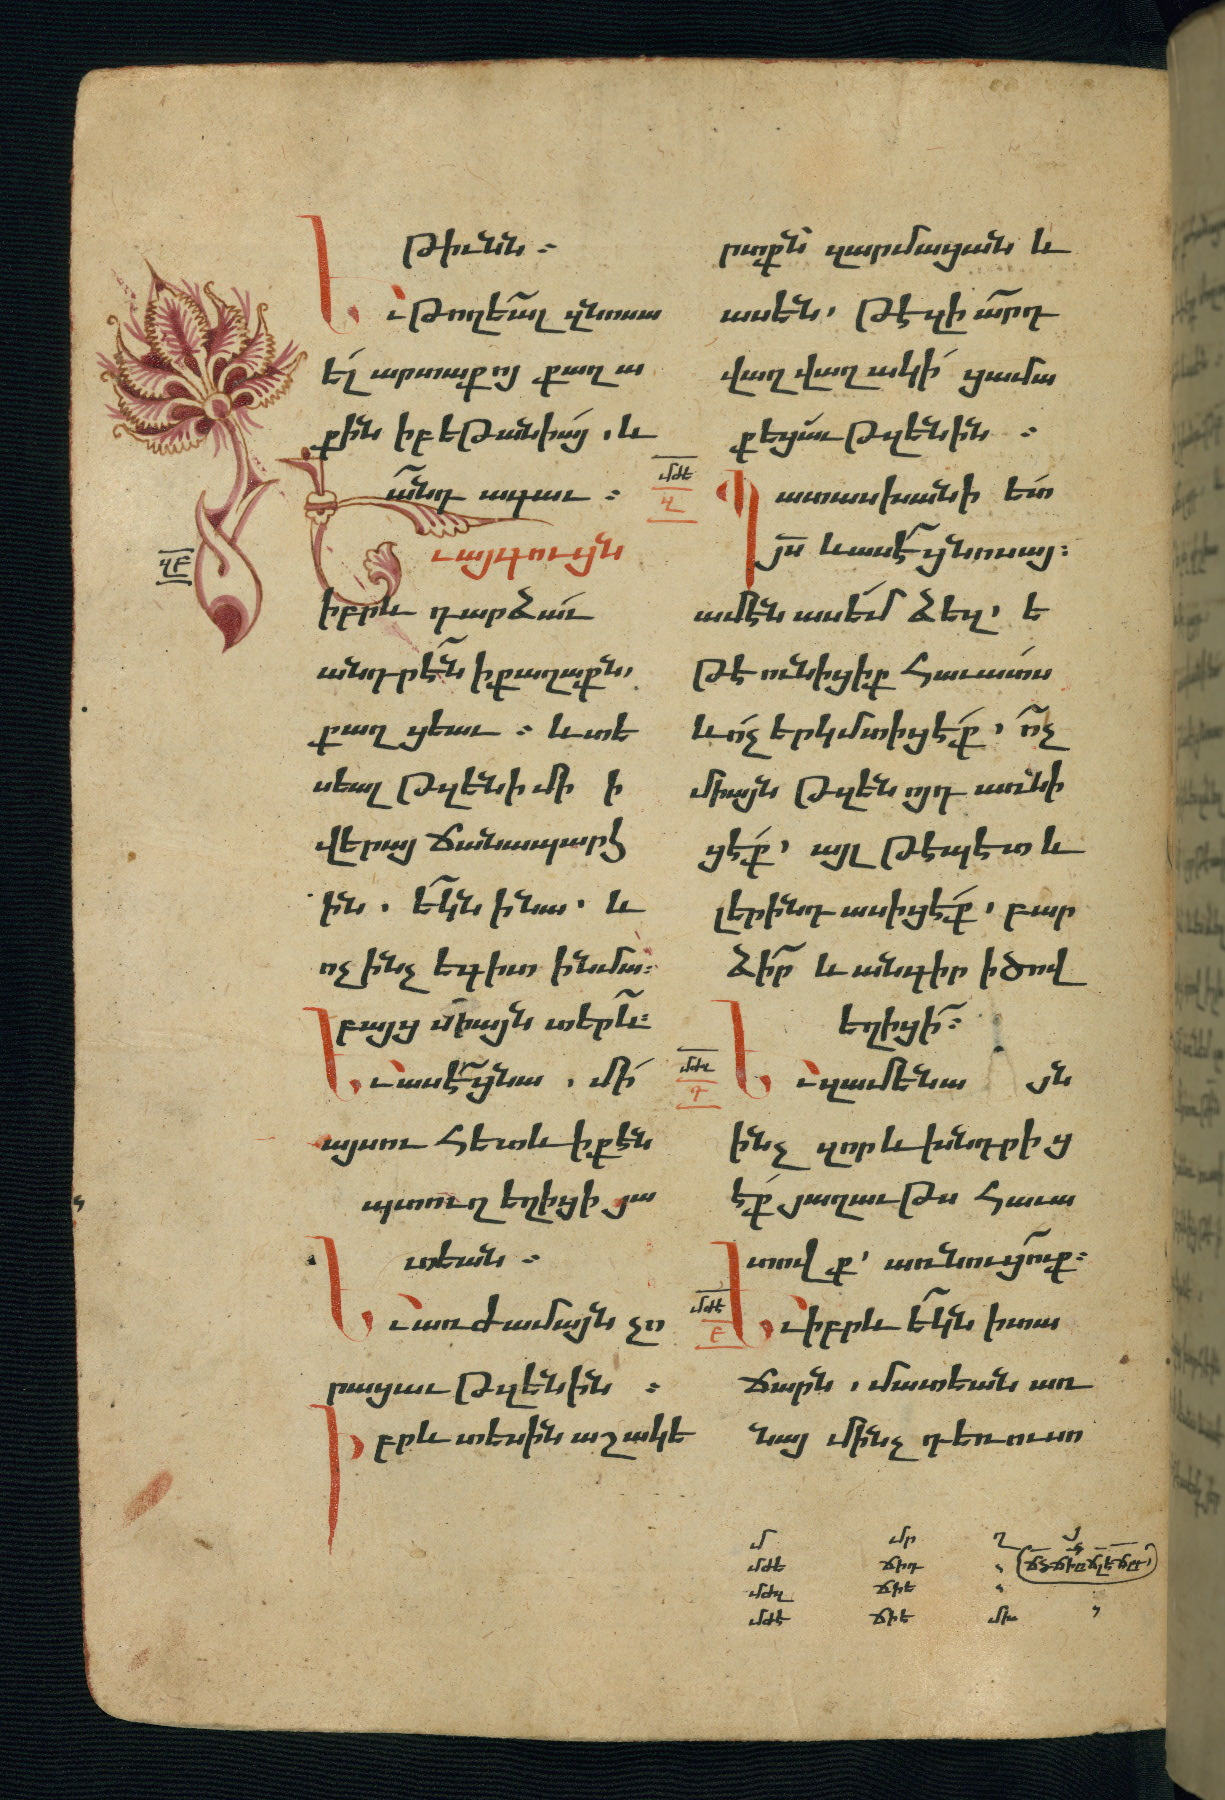 թիւնն :
Եւ թողեալ զնոսա
ել արտաքոյ քաղա
քին ի բեթանիայ . և
անդ ագաւ :
Եւ այգուցն
իբրև դարձաւ
անդրէն ի քաղաքն,
քաղցեաւ : և տե
սեալ թզենի մի ի
վերայ ճանապարհ
ին . եկն ի նա . և
ոչ ինչ եգիտ ի նմա:
բայց միայն տերև:
Եւ ասէ ցնա . մի
այսու հետև ի քէն
պտուղ եղիցի յա
տեան :
Եւ առժամայն չո
րացաւ թզենին :
Իբրև տեսին աշակե
րտքն զարմացան և
ասեն, թէ զիարդ
վաղվաղակի ցամա
քեցաւ թզենին :
մժե
զ
Պատասխանի ետ
յս և ասէ ցնոսայ:
ամէն ասեմ ձեզ, ե
թէ ունիցիք հաւատս
և ոչ երկմտիցէք, ոչ
միայն թզենոյդ առնի
ցէք, այլ թէպէտ և
լերինդ ասիցէք, բար
ձիր և անգիր ի ծով
եղիցի :
Եւ զամենա յն
ինչ զոր և խնդրից
էք յաղաւթս հաւա
տովք, առնուցուք:
մժէ
բ
Եւ իբրև եկն ի տա
ճարն, մատեան առ
նայ մինչ դեռ ուսո
մ մր ղ յ
մժե ճիդ
մժզ ճիե
մժէ ճիէ